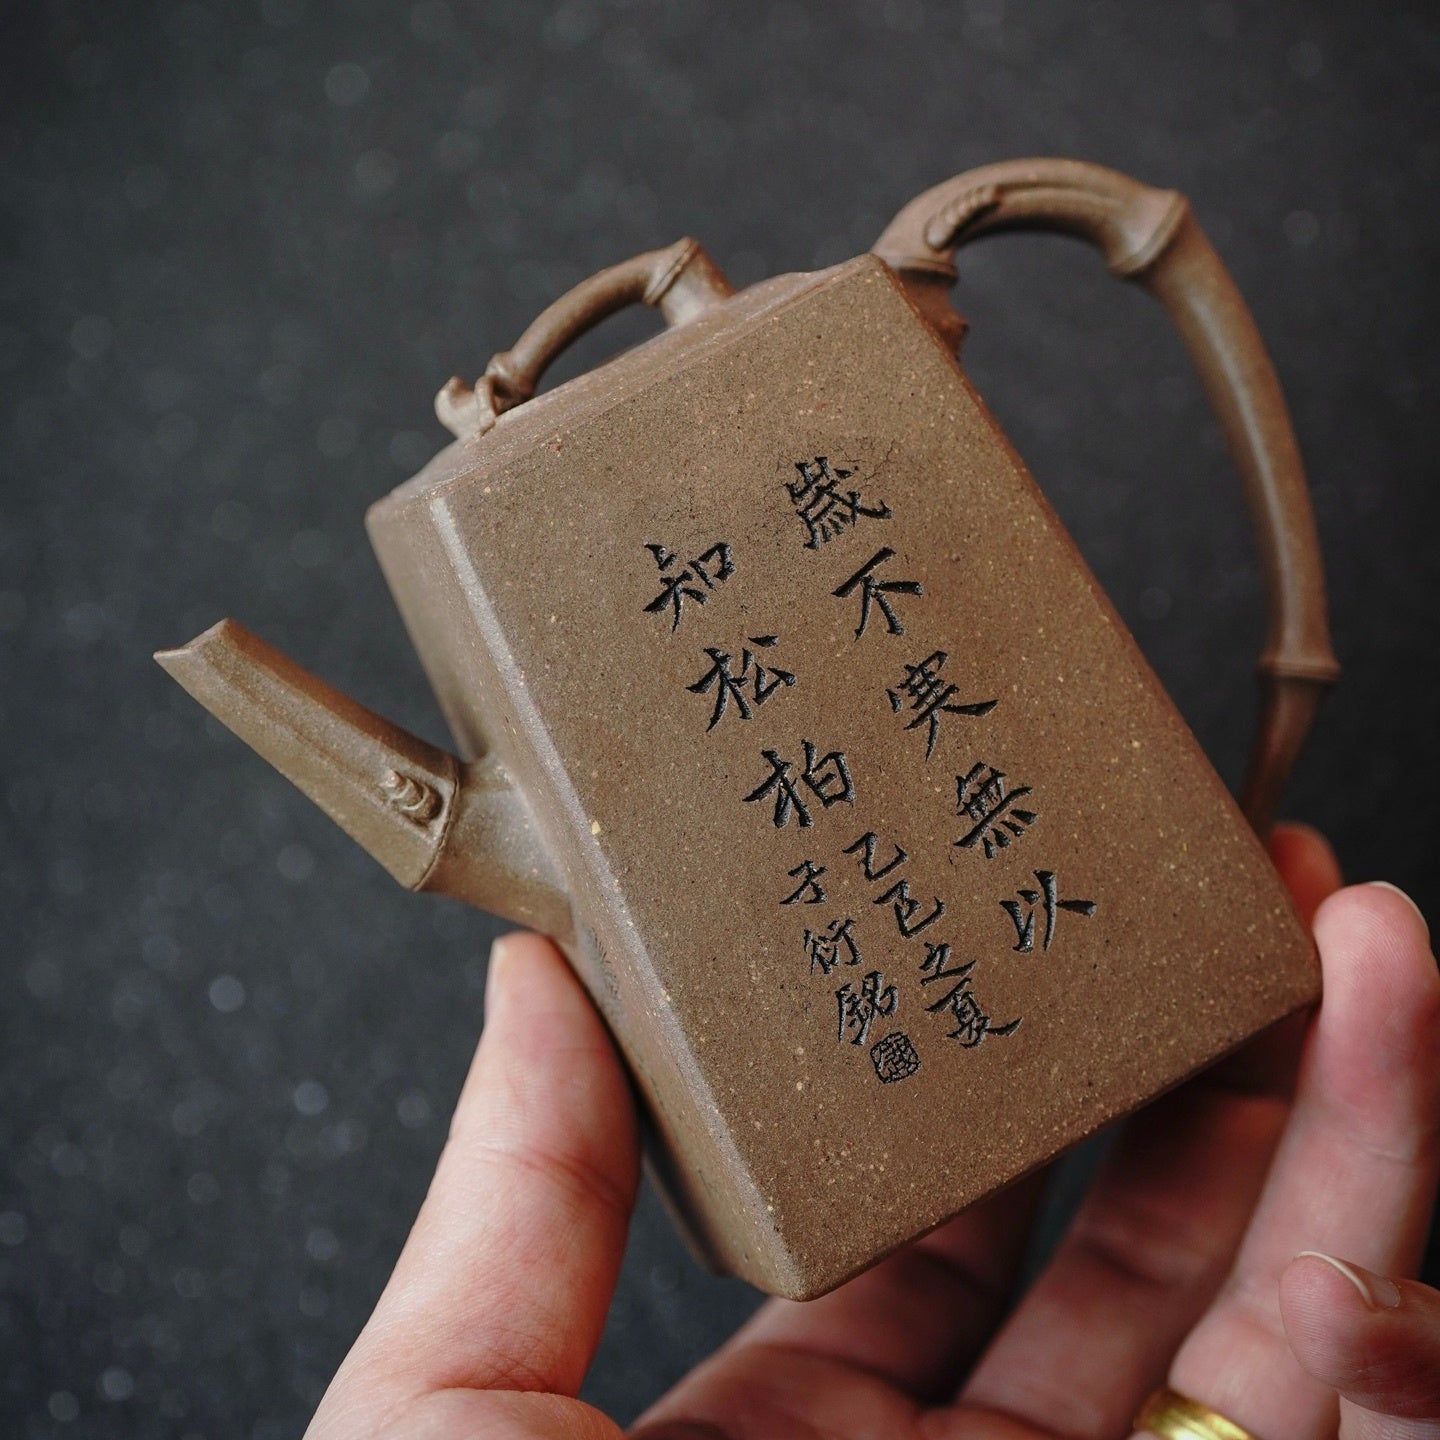 歲不寒無以
知松柏
乙巳之夏
子衍銘